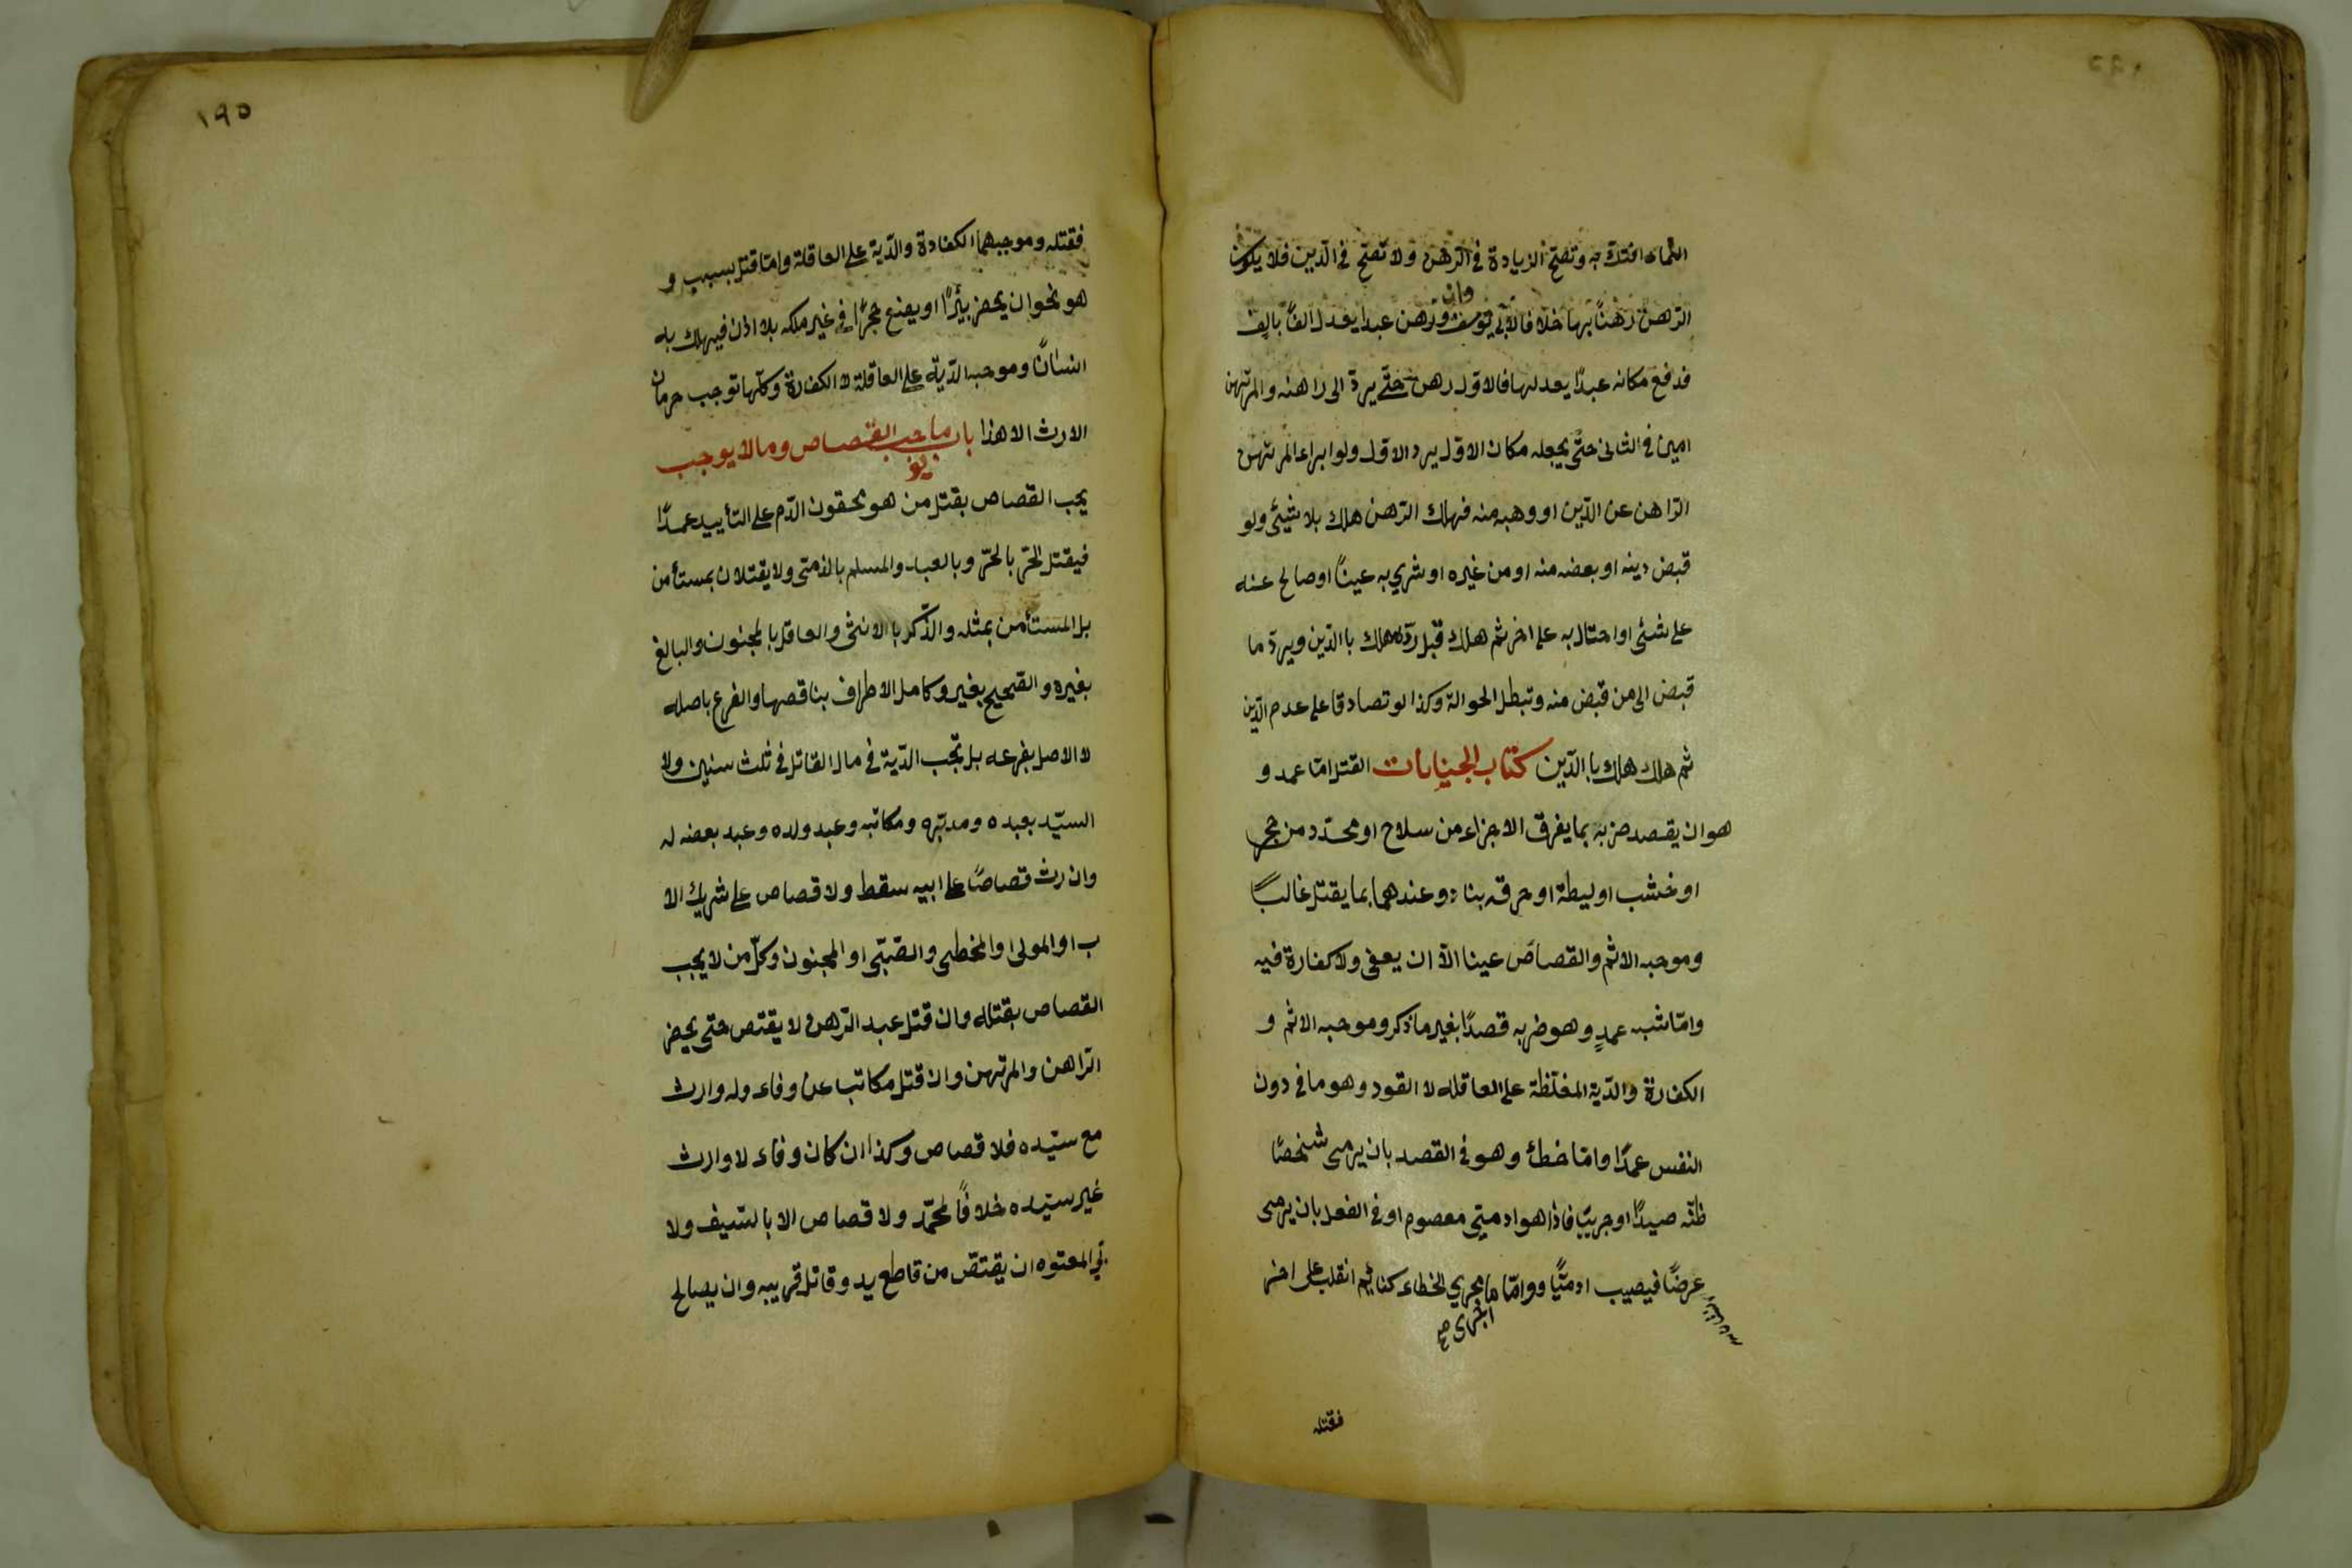 النماء افتك به وتصح الزيادة في الرهن ولا تصح في الدين فلا يكون
الرهن رهنًا بها خلافا لابي يوسف وان رهن عبدا يعدل الفًا بالف
فدفع مكانه عبدًا يعدلها فالاول رهن حتى يردّ الى راهنه والمرتهن
امين في الثاني حتى يجعله مكان الاول برد الاول ولو ابراء المرتهن
الراهن عن الدّين او وهبه منه فهلك الرهن هلك بلا شيئ ولو
قبض دينه او بعضه منه او من غيره او شري به عينًا او صالح عنه
على شئ او احتال به على اخر ثم هلك قبل ردّه هلك باالدّين ويردّ ما
قبض الى من قبض منه وتبطل الحوالة وكذا لو تصادقا على عدم الدّين
ثم هلك هلك باالدّين كتاب الجنايات القتل امّا عمد و
هو ان يقصد ضربه بما يفرق الاجزاء من سلاح او محدّد من حجر
او خشب او ليطة او حرقه بنار وعندهما بما يقتل غالبًا
وموجبه الاثم والقصاص عينا الّا ان يعفى ولا كفارة فيه
وامّا شبه عمدٍ وهو ضربه قصدًا بغير ما ذكر وموجبه الاثم و
الكفارة والدّية المغلّظة على العاقله لا القود وهو ما في دون
النفس عمدًا وامّا خطأ وهو في القصد بان يرمى شخصًا
ظنّه صيدًا او حربيّا فاذا هو ادمىّ معصوم او في الفعل بان يرمى
عرضًا فيصيب ادميًّا وامّا ما مجري الخطاء كنائم انقلب على اخر
اجرى صح
فقتله
١٩٥
فقتله وموجبهما الكفارة والدّية على العاقلة وامّا قتل بسبب و
هو نحو ان يحفر بيئرًا او يضع حجرًا في غير ملكه بلا اذن فيهلك به
انسانًا وموجبه الدّية على العاقلة لا الكفارة وكلّها توجب حرمان
الارث الا هذا باب ما يوجب القصاص وما لا يوجب
يجب القصاص بقتل من هو محقون الدّم على التأبيد عمدًا
فيقتل الحرّ بالحرّ وبالعبد والمسلم بالذمّى ولا يقتلان بمستأمن
بل المستأمن بمثله والذّكر با الانثى والعاقل بالمجنون والبالغ
بغيره والصّحيح بغيره وكامل الاطراف بناقصها والفرع باصله
لا الاصل بفرعه بل تجب الدّية في مال القاتل في ثلث سنين ولا
السيّد بعبده ومدبّره ومكاتبه وعبد ولده وعبد بعضه له
وان رث قصاصًا على ابيه سقط ولا قصاص على شريك الا
ب او المولى او المخطى والصّبىّ او المجنون وكلّ من لا يجب
القصاص بقتله وان قتل عبد الرّهن لا يقتص حتى يحضر
الراهن والمرتهن وان قتل مكاتب عن وفاء وله وارث
مع سيّده فلا قصاص وكذا ان كان وفاء لا وارث
غير سيّده خلافًا لمحمّد ولا قصاص الا بالسّيف ولا
بي المعتوه ان يقتصّ من قاطع يد وقاتل قريبه وان يصالح